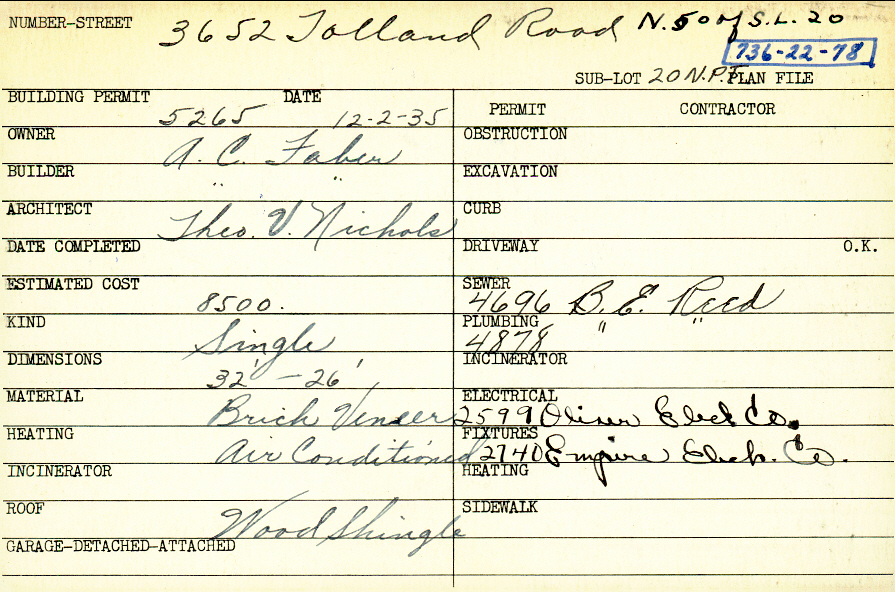 NUMBER-STREET 3652 Tolland Road N. 50 of S.L. 20
736-22-78
SUB-LOT 20 N.PT. PLAN FILE
BUILDING PERMIT 5265 DATE 12-2-35
PERMIT CONTRACTOR
OWNER A. C. Faber
OBSTRUCTION
BUILDER " "
EXCAVATION
ARCHITECT Theo. V. Nichols
CURB
DATE COMPLETED
DRIVEWAY O.K.
ESTIMATED COST 8500.
SEWER 4696 B. E. Reed
KIND Single
PLUMBING 4878 " "
DIMENSIONS 32' - 26'
INCINERATOR
MATERIAL Brick Veneer
ELECTRICAL 2599 Oliver Elect Co.
HEATING Air Conditioned
FIXTURES 2740 Empire Elec. Co.
INCINERATOR
HEATING
ROOF Wood Shingle
SIDEWALK
GARAGE-DETACHED-ATTACHED